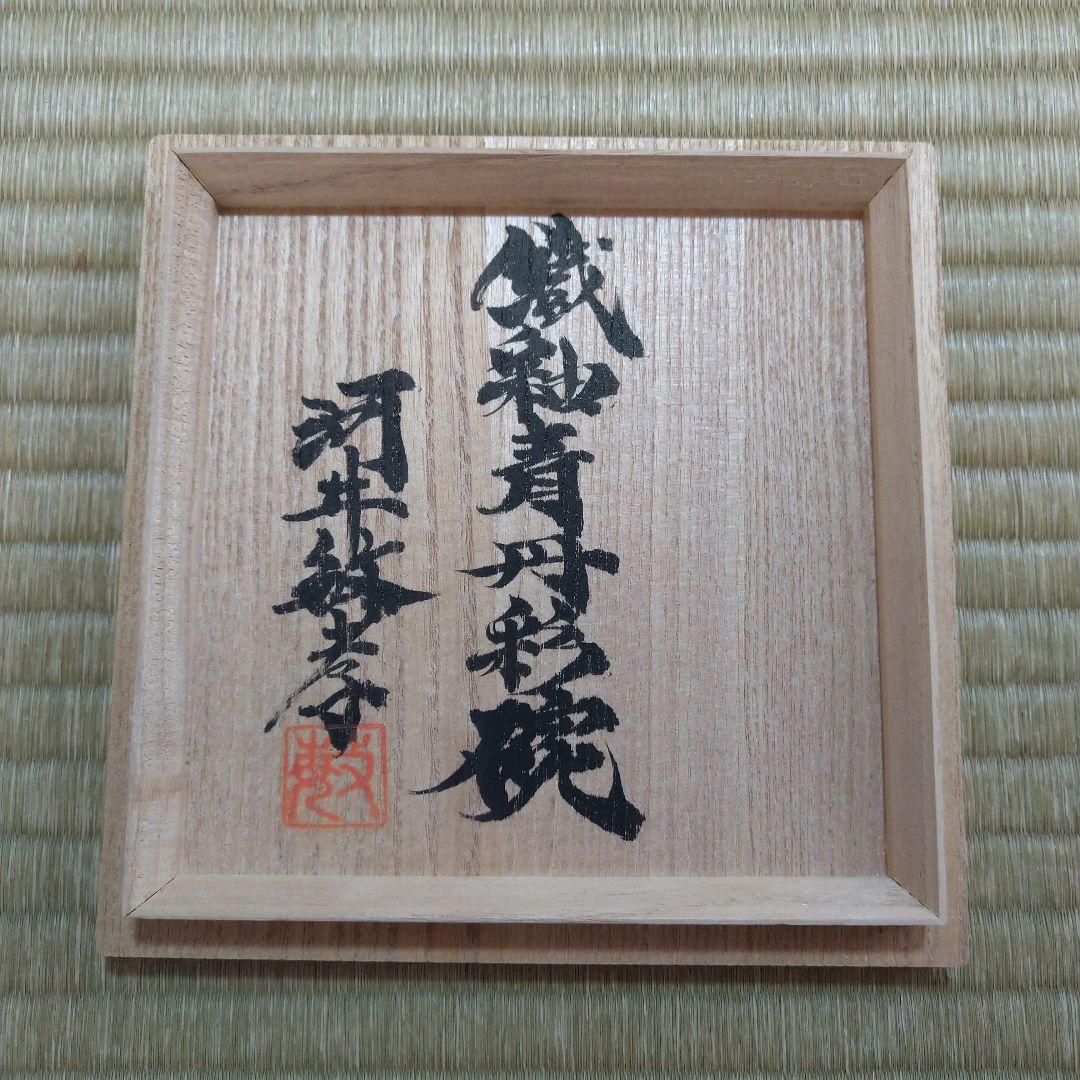 鐵釉青丹彩碗
河井敏孝
敏